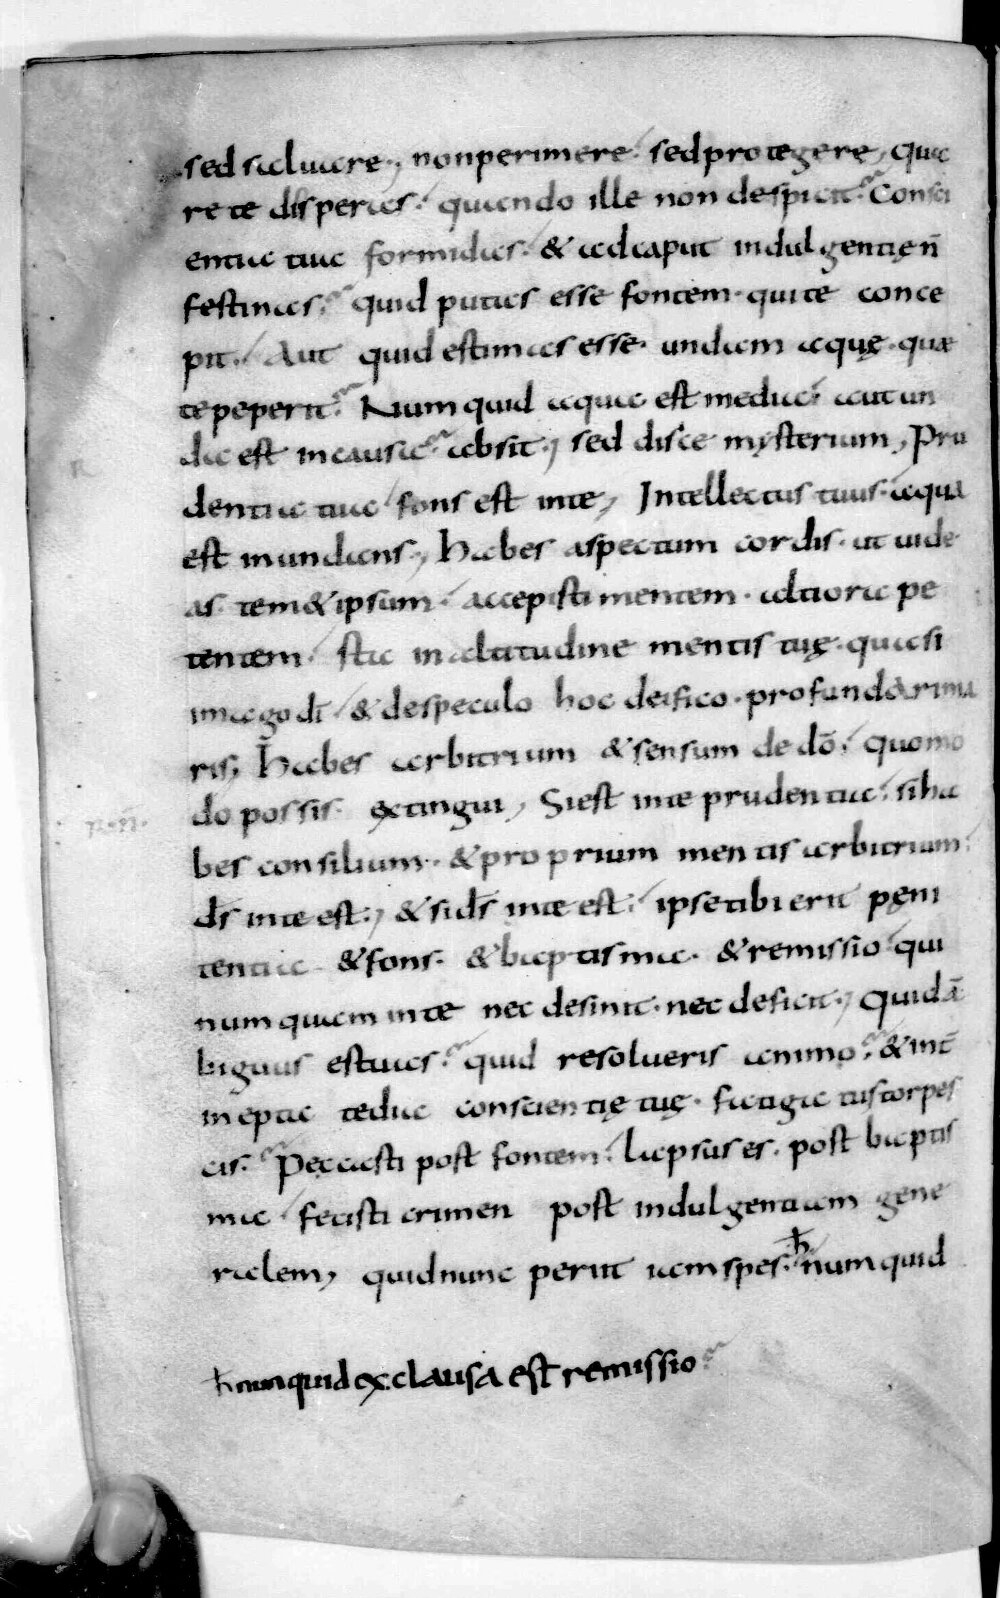 sed saluare, non perimere. sed protegere, qua
re te disperas. quando ille non despicit? Consci
entia tua formidas. & ad caput indulgentię n̄
festinas? quid putas esse fontem. qui te conce
pit. Aut quid estimas esse. undam aquę. quæ
te peperit? Numquid aqua est media. aut un
da est in causa? absit, sed disce mysterium, Pru
dentia tua fons est in te, Intellectus tuus. aqua
est mundans, Habes aspectum cordis. ut uide
as. tem&ipsum. accepisti mentem. altiora pe
tentem. sta in altitudine mentis tuę. quasi
imago dī. & de speculo hoc deifico. profunda rima
ris, Habes arbitrium & sensum de dō. quomo
do possis. extingui, Si est in te prudentia. si ha
bes consilium. & proprium mentis arbitrium.
ds̄ in te est, & si ds̄ in te est. ipse tibi erit pęni
tentia & fons. & baptisma. & remissio. qui
numquam in te nec desinit. nec deficit, Quid ā
biguus estuas? quid resolueris animo? & int̄
inepta tedia conscientię tuę. fatiga tus torpes
cis? Peccasti post fontem. lapsus es. post baptis
ma. fecisti crimen post indulgentiam gene
ralem, quid nunc perit iam spes? ħ numquid
ħ numquid exclausa est remissio?